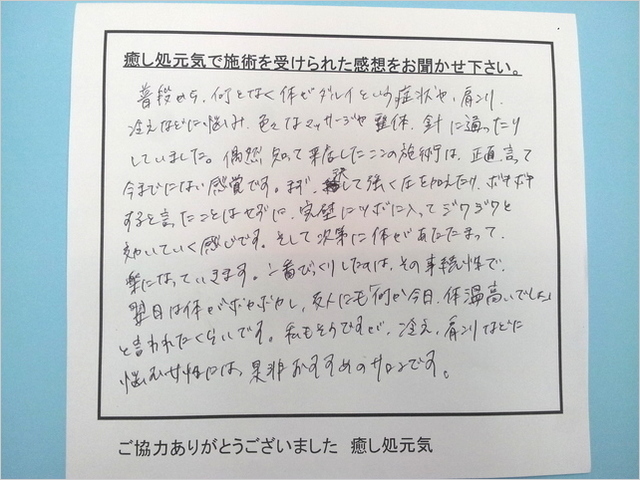 癒し処元気で施術を受けられた感想をお聞かせ下さい。
普段から、何となく体がダルイという症状や、肩こり、
冷えなどに悩み、色々なマッサージや整体、針に通ったり
していました。偶然知って来店したここの施術は、正直言って
今までにない感覚です。まず、決して強く圧を加えたり、ボキボキ
すると言ったことはせずに、完璧にツボに入ってジワジワと
効いていく感じです。そして次第に体があたたまって、
楽になっていきます。一番びっくりしたのは、その持続性で、
翌日は体がポカポカし、友人にも「何か今日、体温高いでしょ」
と言われたくらいです。私もそうですが、冷え、肩こりなどに
悩む女性には、是非おすすめのサロンです。
ご協力ありがとうございました 癒し処元気